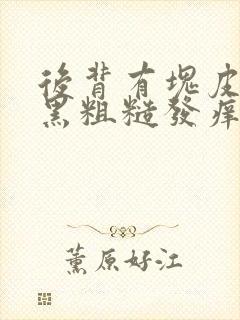 後背有塊皮
黑粗糙發痒
薰原好江